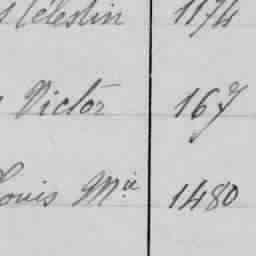 Celestin 1174
Victor 167
Louis Mie 1480